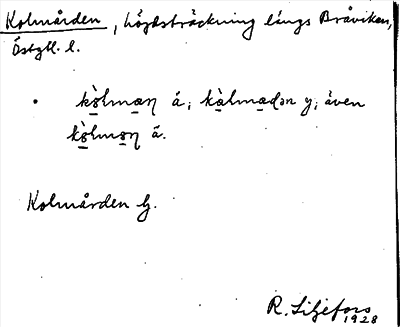 Kolmården, höjdsträckning längs Bråviken,
Östgtl. l.
• kò̱lma̱ɳ ä; kà̱lma̱dən y; även
kò̱lmo̱ɳ ä.
Kolmården G.
R. Liljefors
1928